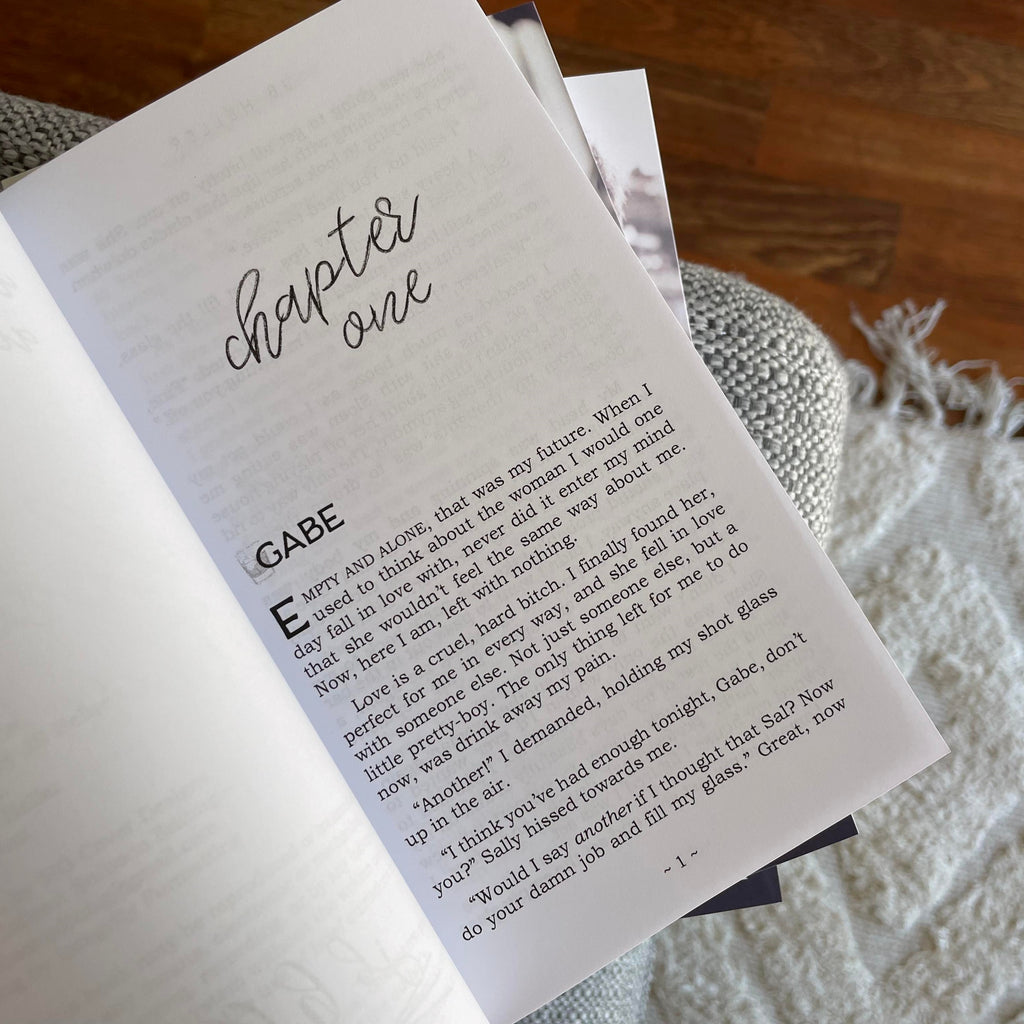 chapter
one
GABE
EMPTY AND ALONE, that was my future. When I
used to think about the woman I would one
day fall in love with, never did it enter my mind
that she wouldn't feel the same way about me.
Now, here I am, left with nothing.
Love is a cruel, hard bitch. I finally found her,
perfect for me in every way, and she fell in love
with someone else. Not just someone else, but a
little pretty-boy. The only thing left for me to do
now, was drink away my pain.
"Another!" I demanded, holding my shot glass
up in the air.
"I think you've had enough tonight, Gabe, don't
you?" Sally hissed towards me.
"Would I say another if I thought that Sal? Now
do your damn job and fill my glass." Great, now
~ 1 ~